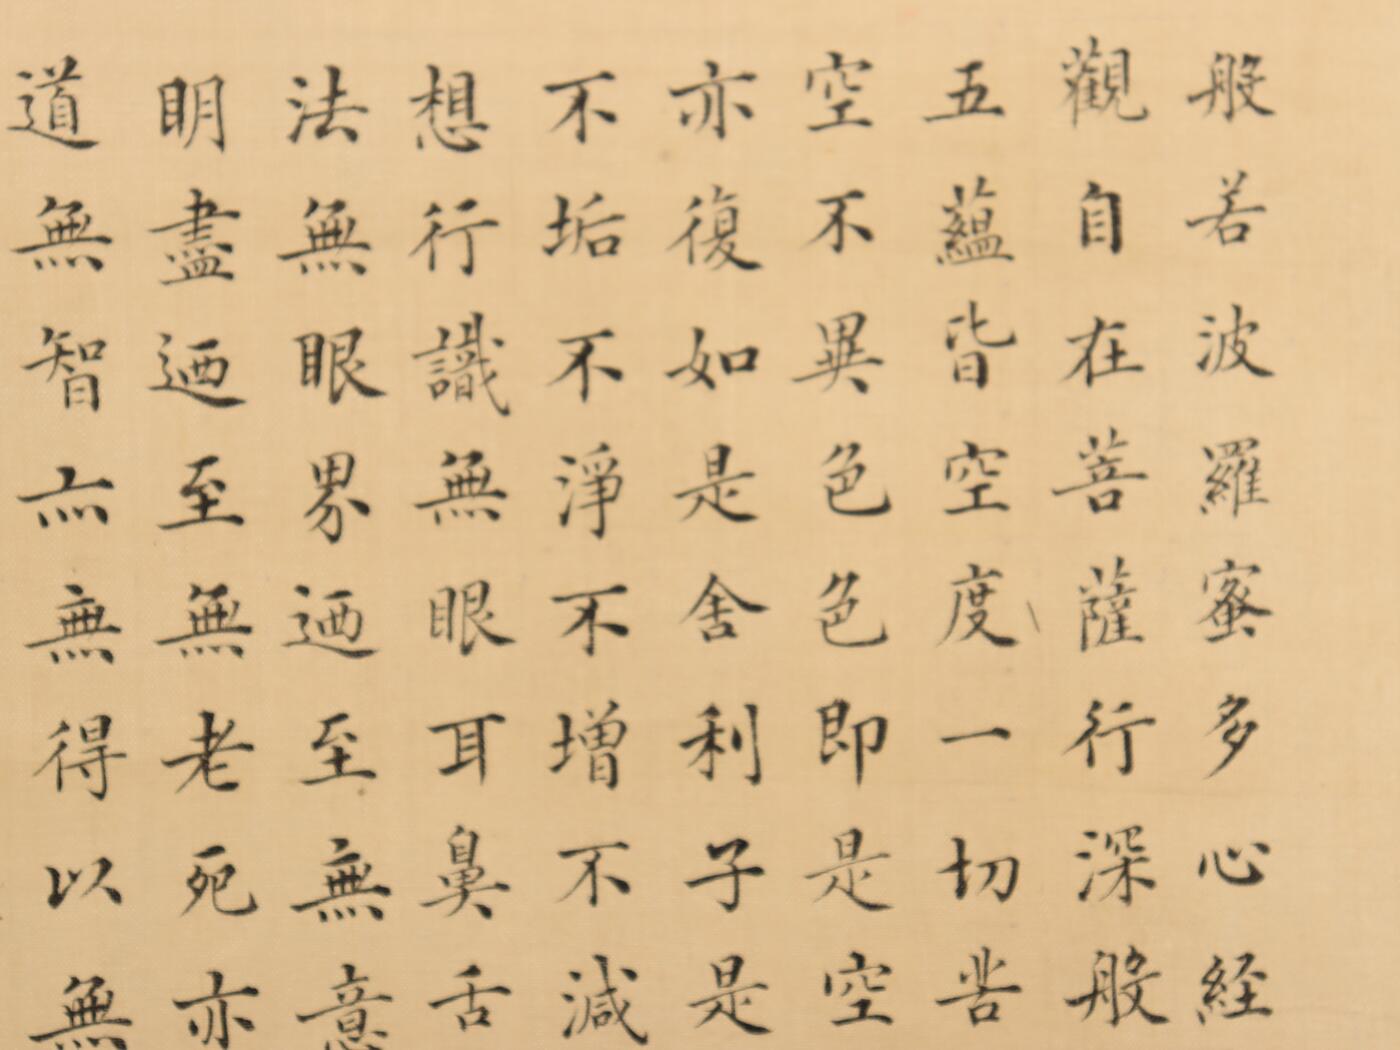 般若波羅蜜多心経
觀自在菩薩行深般
五蘊皆空度一切苦
空不異色色即是空
亦復如是舍利子是
不垢不淨不增不減
想行識無眼耳鼻舌
法無眼界迺至無意
明盡迺至無老死亦
道無智亦無得以無